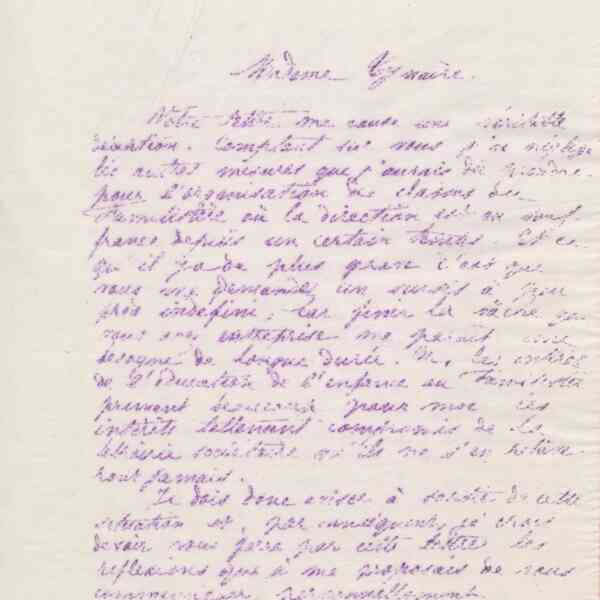 Madame
Votre lettre me cause une véritable
déception. Comptant sur vous j'ai négligé
les autres mesures que j'aurais dû prendre
pour l'organisation des classes du
Familistère où la direction est en souf-
france depuis un certain temps. Et ce
qu'il y a de plus grave c'est que
vous me demandez un sursis à peu
près indéfini, car finir la tâche que
vous avez entreprise me parait une
besogne de longue durée. les intérêts
de l'éducation de l'enfance au Familistère
prennent pour moi les
intérêts tellement compromis de la
sociétaire qu'ils ne s'en relève-
ront jamais.
Je dois donc aviser à sortir de cette
situation et, par conséquent, je crois
devoir vous faire par cette lettre les
réflexions que je me proposais de vous
communiquer personnellement.